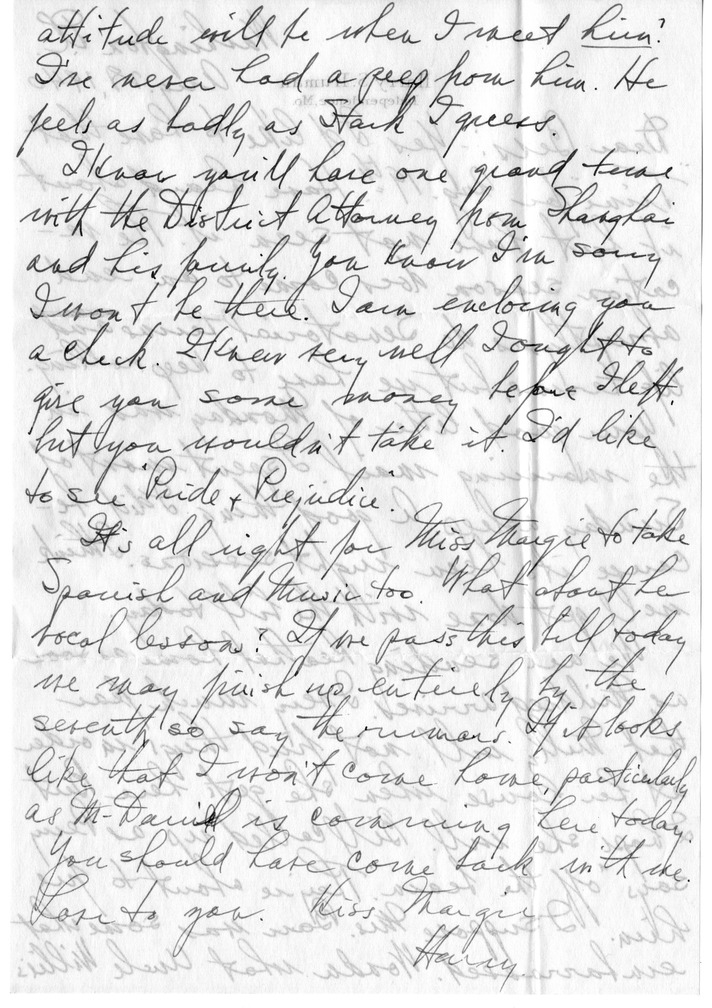 attitude will be when I meet him?
I've never had a peep from him. He
feels as badly as Stark I guess.
I know you'll have one grand time
with the District Attorney from Shanghai
and his family. You know I'm sorry
I won't be there. I am enclosing you
a check. I knew very well I ought to
give you some money before I left.
but you wouldn't take it. I'd like
to see "Pride & Prejudice".
It's all right for Miss Margie to take
Spanish and Music too. What about her
vocal lesson? If we pass this bill today
we may finish up entirely by the
seventh, so say the rumors. If it looks
like that I won't come home, particularly
as McDaniel is comming here today.
You should have come back with me.
Love to you. Kiss Margie
Harry.